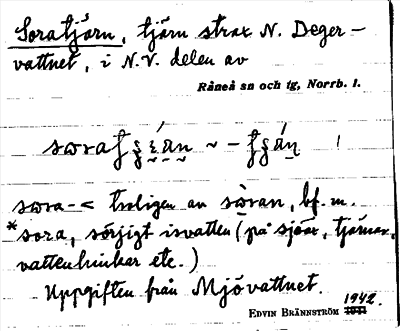 Soratjärn, tjärn strax N. Deger-
vattnet, i N.V. delen av
Råneå sn och tg, Norrb. l.
swra- < troligen av sẁran, bf. m.
*sora, sörjigt isvatten (på sjöar, tjärnar,
vattenhinkar etc.)
Uppgiften från Mjövattnet.
1942.
EDVIN BRÄNNSTRÖM